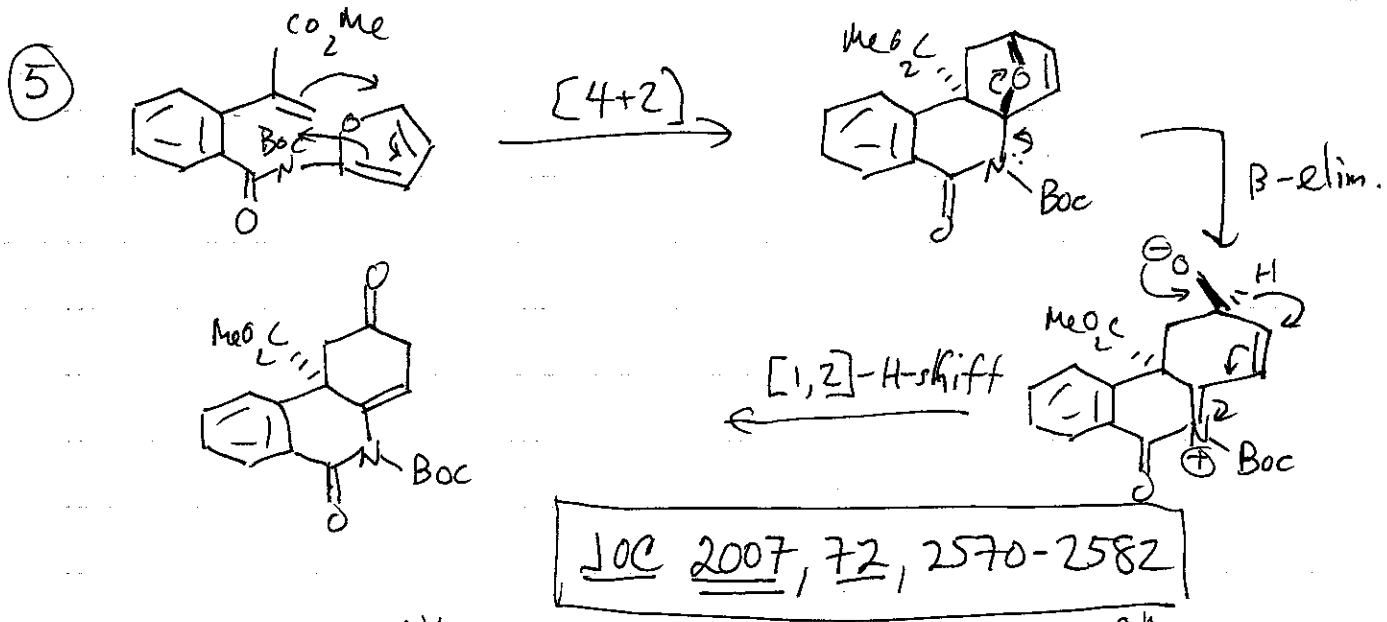 ⑤
CO2Me
Boc
O
N
O
[4+2]
MeO2C
O
N
Boc
O
β-elim.
⊖O
H
MeO2C
N
⊕
Boc
O
[1,2]-H-shift
O
MeO2C
N
Boc
O
JOC 2007, 72, 2570-2582